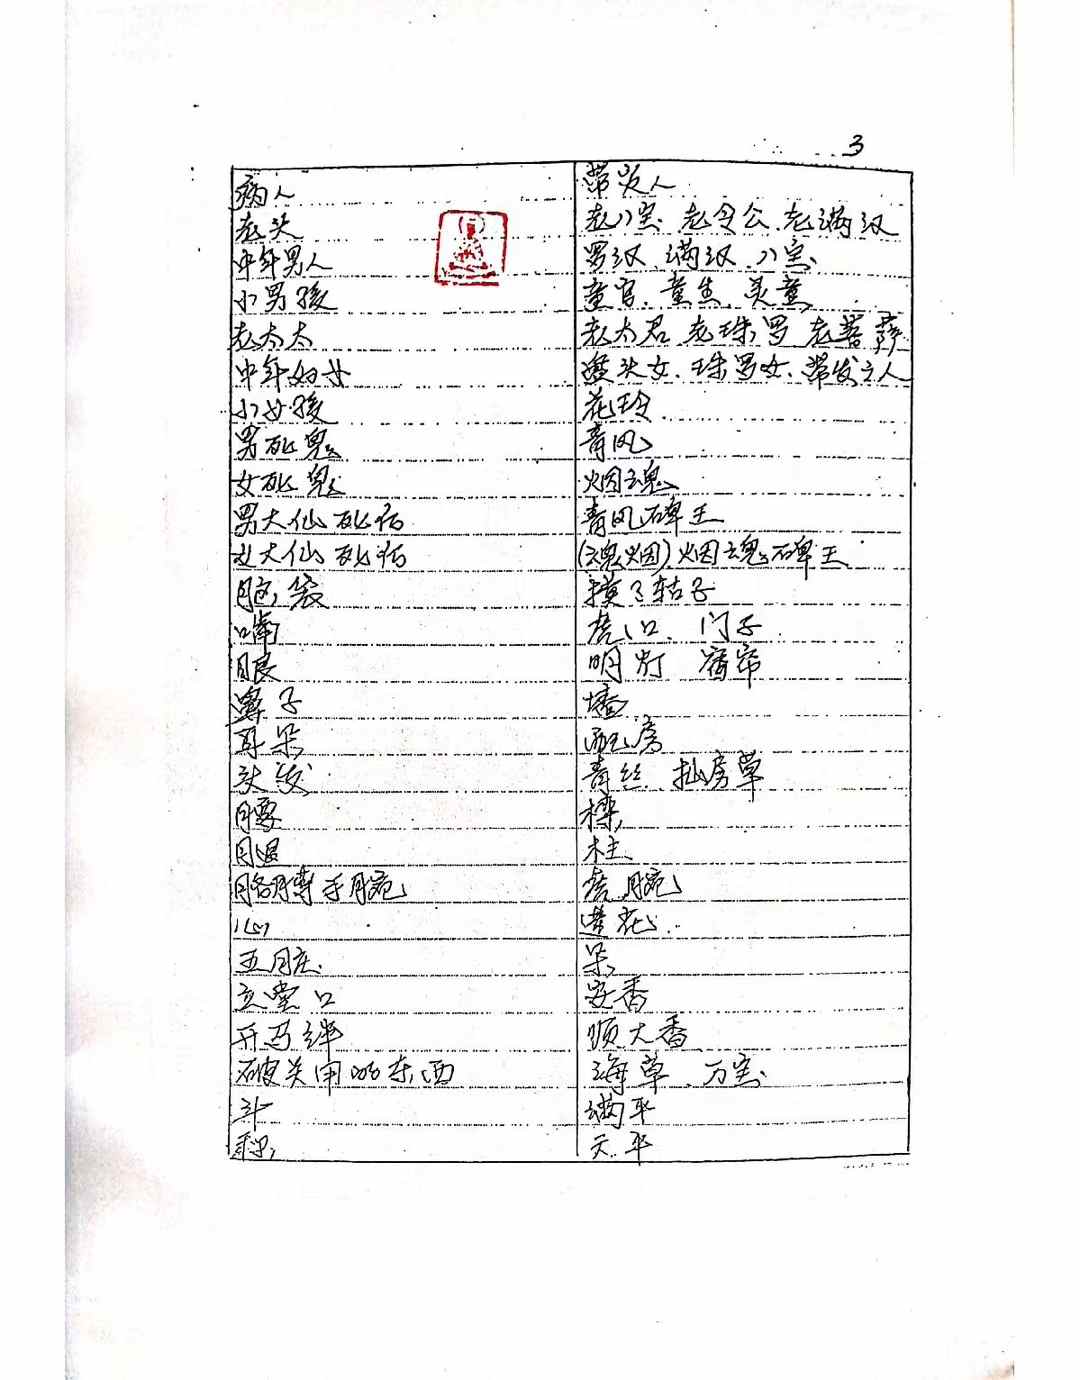 3
病人 带岁人
老头 老八宝 老令公 老满汉
中年男人 罗汉、满汉、八宝
小男孩 童官、童生、灵童
老太太 老太君 老珠罗 老菩萨
中年妇女 头女、珠罗女、带发立人
小女孩 花玲
男死鬼 青风
女死鬼 烟魂
男大仙死后 青风碑王
女大仙死后 (魂烟)烟魂碑王
脑袋
嘴 虎口、门子
眼 明灯 窗帘
鼻子
耳朵 房
头发 青丝 房草
腰 樽
腿 柱
胳膊手腕 腕
心 莲花
五脏 朵
立堂口 安香
开马绊 顺大香
破关用的东西 海草、万宝
斗 满平
秤 天平